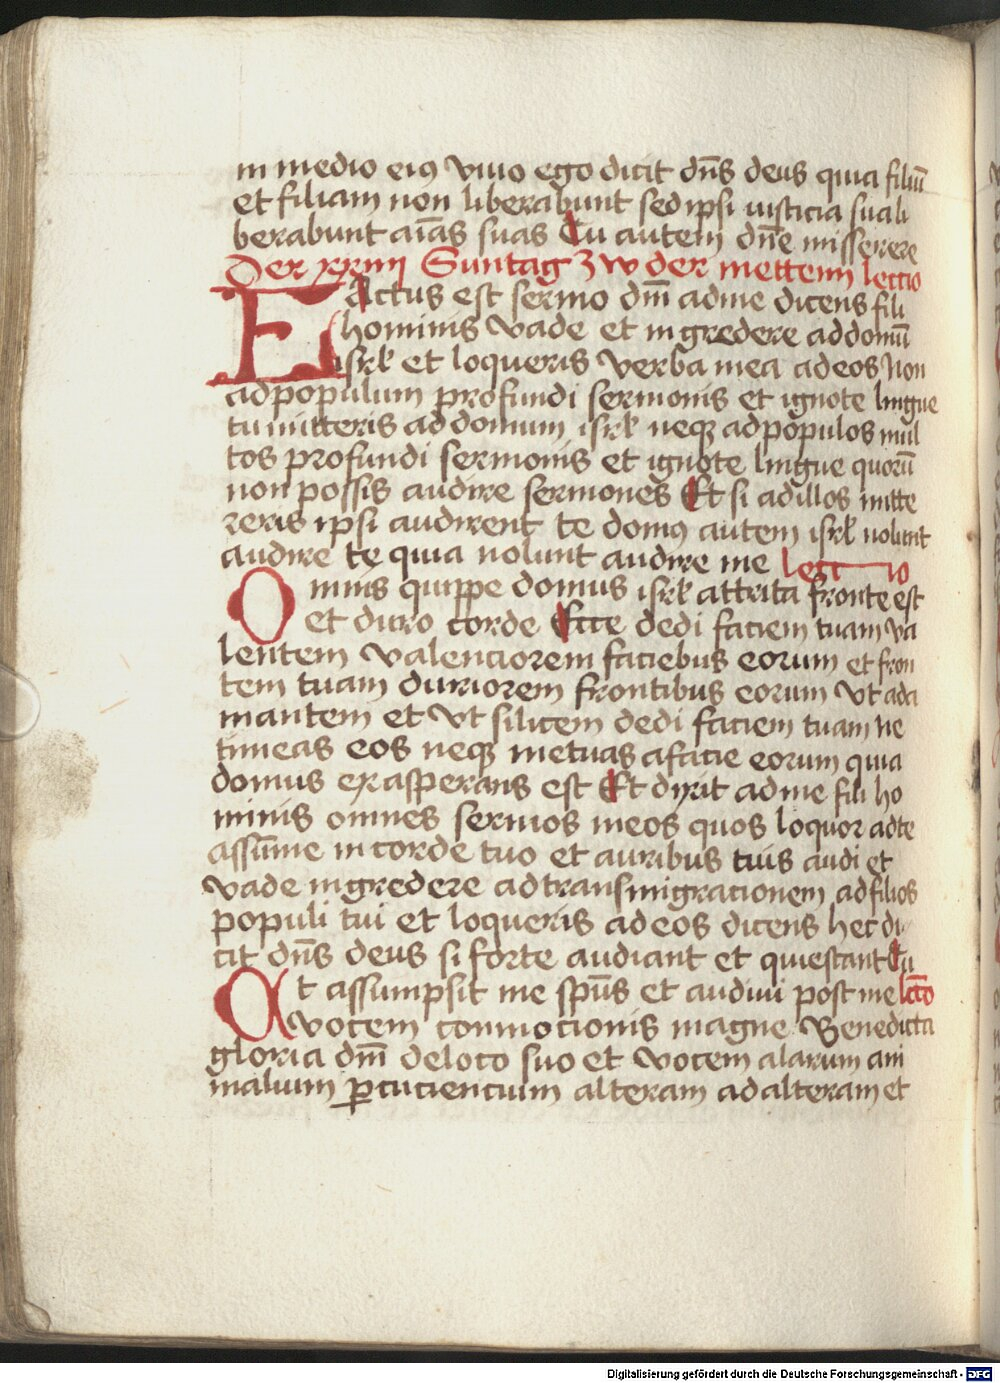 in medio eiꝯ vivo ego dicit dn̄s deus quia filiū
et filiam non liberabunt sed ipsi iusticia sua li
berabunt aīas suas Tu autem dn̄e misserere
Der xxiiij Suntag zw der mettenn lectio
FActus est sermo dm̄ ad me dicens fili
hominis vade et ingredere ad domū
isrl et loqueris verba mea ad eos Non
ad populum profundi sermonis et ignote lingue
tu mitteris ad domum isrl neqꝫ ad populos mul
tos profundi sermonis et ignote lingue quorū
non possis audire sermones Et si ad illos mitte
reris ipsi audirent te domꝯ autem isrl nolunt
audire te quia nolunt audire me lectio
Omnis quippe domus isrl attrita fronte est
et duro corde Ecce dedi faciem tuam va
lentem valenciorem faciebus eorum et fron
tem tuam duriorem frontibus eorum vt ada
mantem et vt silicem dedi faciem tuam ne
timeas eos neqꝫ metuas a facie eorum quia
domus exasperans est Et dixit ad me fili ho
minis omnes sermos meos quos loquor ad te
assūme in corde tuo et auribus tuis audi et
vade ingredere ad transmigracionem ad filios
populi tui et loqueris ad eos dicens hec di
cit dn̄s deus si forte audiant et quiescant Tu
At assumpsit me spūs et audiui post me lc̄to
vocem conmocionis magne Benedicta
gloria dm̄ de loco suo et vocem alarum ani
malium ꝑcuciencium alteram ad alteram et
Digitalisierung gefördert durch die Deutsche Forschungsgemeinschaft - DFG